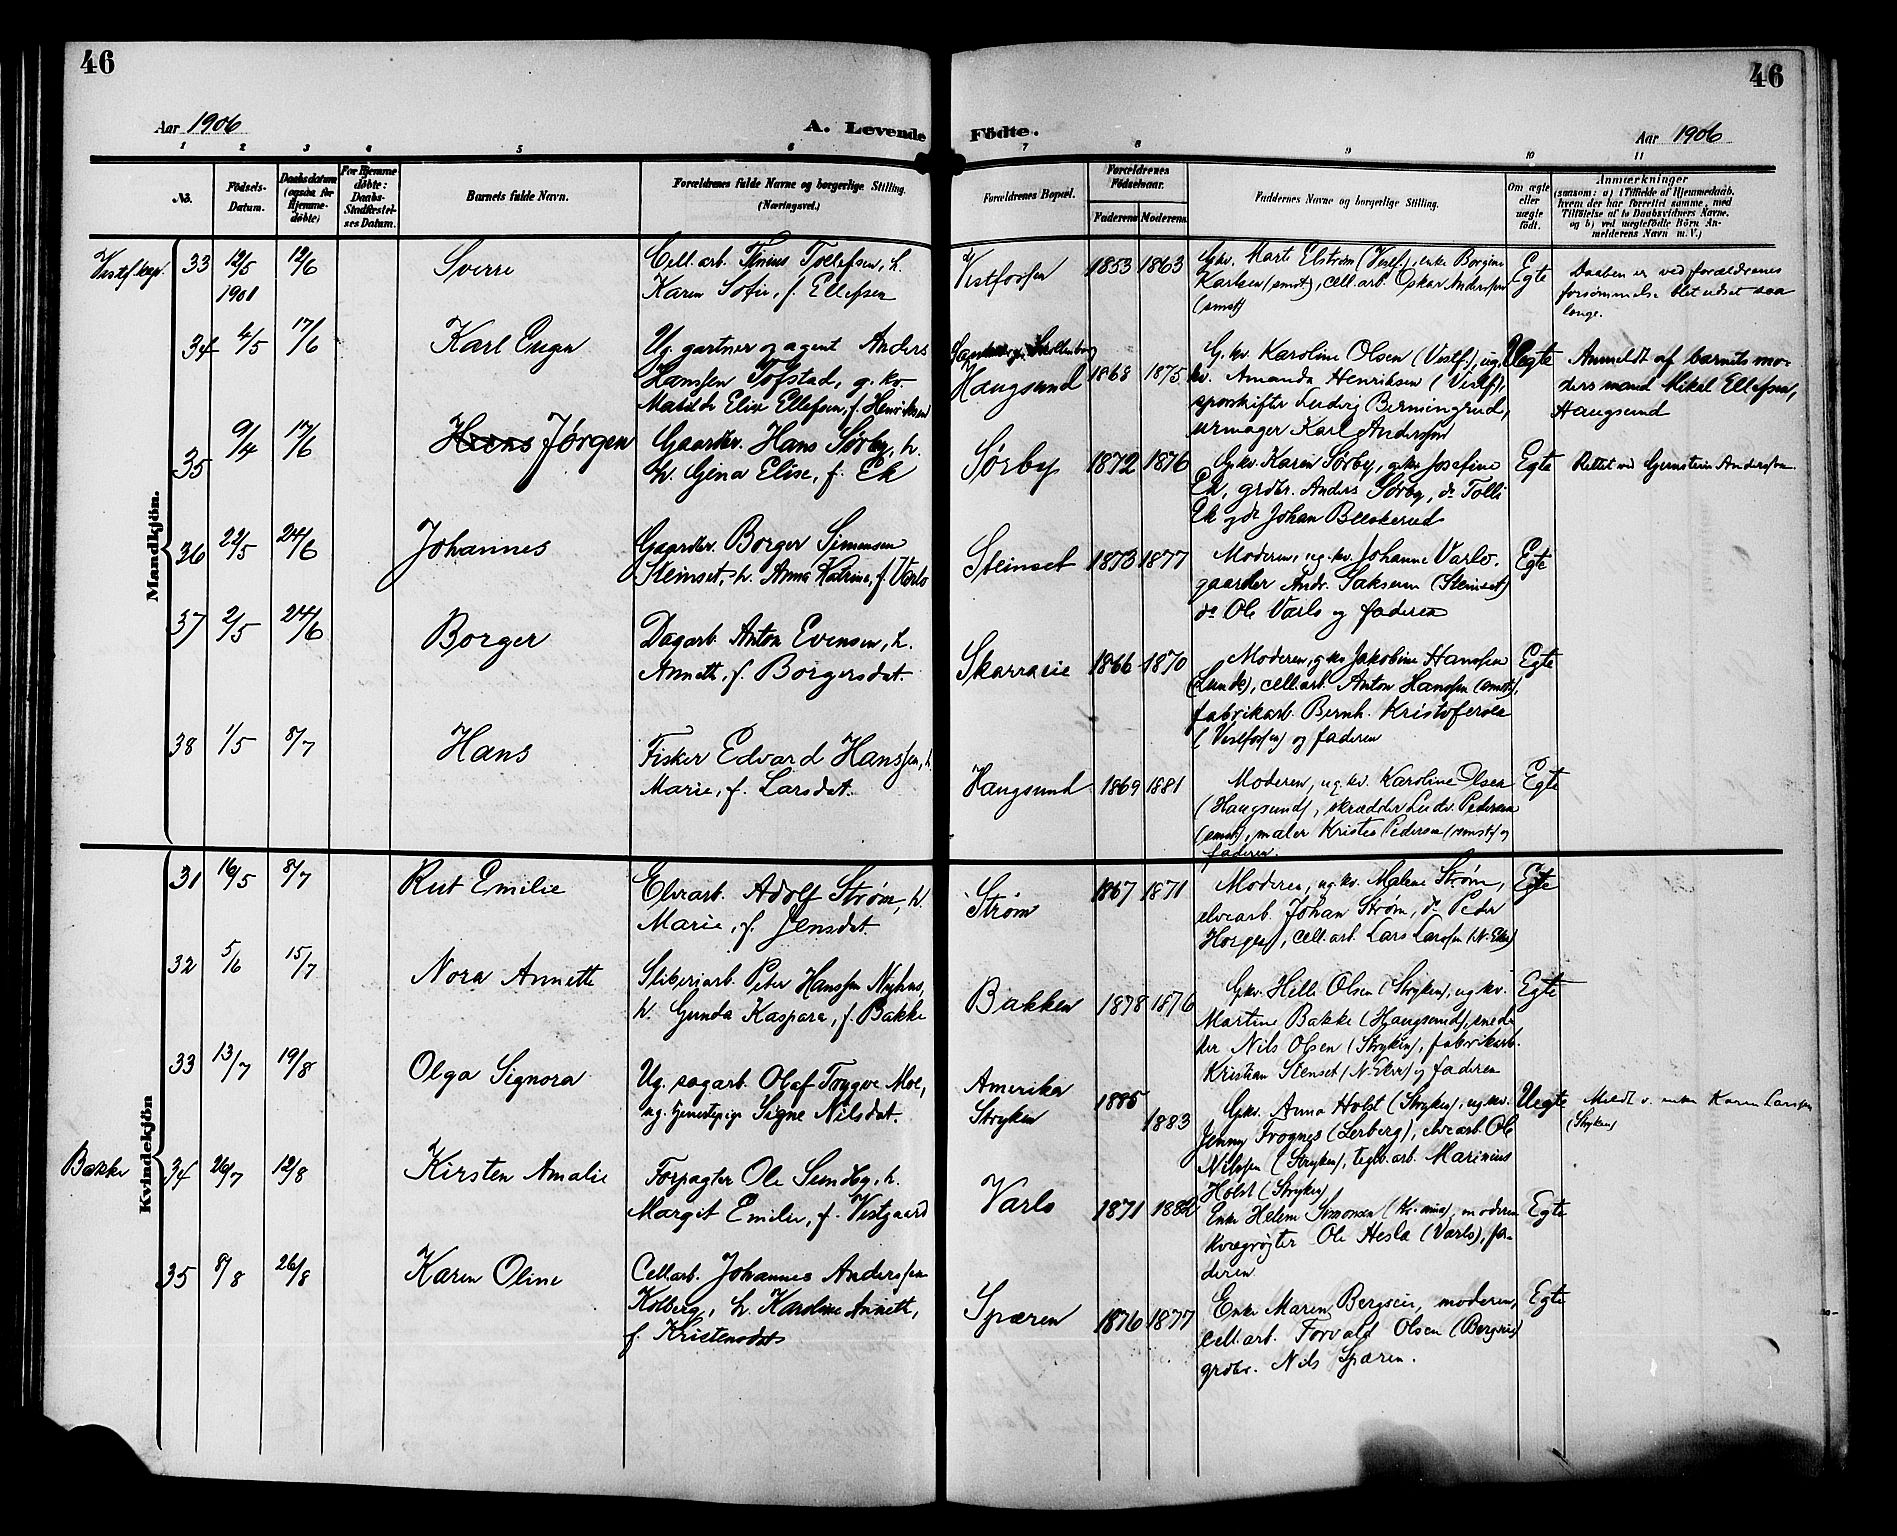 46
46
Aar 1906
A. Levende
Födte.
Aar 1906
1 2 3 4 5 6 7 8 9 10 11
No.
Födsels-
Datum.
Daabsdatum
(ogsaa for
Hjemme-
döbte)
For Hjemme
döbte:
Daabs-
Stadfæstel-
ses Datum.
Barnets fulde Navn.
Forældrenes fulde Navne og borgerlige Stilling.
(Næringsvei.)
Forældrenes Bopæl.
Forældrenes
Födselsaar.
Faderens
Moderens
Faddernes Navne og borgerlige Stilling.
Om ægte
eller
uægte
født.
Anmærkninger
(saasom: a) i Tilfælde af Hjemmedaab,
hvem der har forrettet samme, med
Tilføielse af to Daabsvidners Navne,
og b) ved uægtefödte Börn An-
melderens Navn m. V.)
Mandkjön.
33 12/5 1901 12/6
Sverre
Cell.arb. Tinius Tollefsen, h.
Karen Sofie, f. Ellefsen
Vestfossen
1853 1863
Gkv. Marte Elström (Vestf.), enke Borgine
Karlsen (smst), cell.arb. Oskar Anderssen
(smst)
Egte
Daaben er ved forældrenes
forsømmelse blet udsat saa
længe.
34 4/5 17/6
Karl Eugen
Ug. gartner og agent Anders
Hanssen Tofstad, g.kv.
Matilde Elise Ellefsen, f. Henriksen
Haugsund
1868 1875
G.kv. Karoline Olsen (Vestf.), ug.
kv. Amanda Henriksen (Vestf.),
sporskifter Ludvig Bermingrud,
urmager Karl Anderssen
Uegte
Anmeldt af barnets mo-
ders mand Mikal Ellefsen,
Haugsund
35 9/4 17/6
Hans Jørgen
Gaardbr. Hans Sørby, h.
h. Gina Elise, f. Ek
Sørby
1872 1876
Gkv. Karen Sørby, gkv Josefine
Ek, grdbr. Anders Sørby, do Tolli
Ek og do Johan Bleskerud
Egte
Rettet ved Gjenstein Anderssen
36 22/5 24/6
Johannes
Gaardbr. Borger Simensen
Steinset, h. Anna Katrine, f. Varlo
Steinset
1873 1877
Moderen, ug.kv. Johanne Varlo.
gaardbr Andr. Saksen (Steinset)
do Ole Varlo og faderen
Egte
37 2/5 24/6
Borger
Dagarb. Anton Evensen, h.
Annette, f. Borgersdat.
Skarraeie
1866 1870
Moderen, gkv Jakobine Hanssen
(Lunde), cell.arb. Anton Hanssen (smst),
fabrikarb. Bernh. Kristofersen
(Vestfossen) og faderen
Egte
38 1/5 8/7
Hans
Fisker Edvard Hanssen, h.
Marie, f. Larsdat.
Haugsund
1869 1881
Moderen, ug.kv. Karoline Olsen
(Haugsund), skrædder Ludv. Pedersen
(smst), maler Kristen Pedersen (smst) og
faderen.
Egte
Kvindekjön
31 16/5 8/7
Rut Emilie
Elvearb. Adolf Strøm, h.
Marie, f. Jensdat.
Strøm
1867 1871
Moderen, ug.kv. Malene Strøm,
elvearb. Johan Strøm, do Peder
Horgen, cell.arb. Lars Larssen (N. Eker)
Egte
32 5/6 15/7
Nora Annette
Sliberiarb. Peter Hanssen Nyhus,
h. Gunda Kaspara, f. Bakke
Bakken
1878 1876
Gkv. Helle Olsen (Stryken), ug.kv.
Martine Bakke (Haugsund), sned-
ker Nils Olsen (Stryken), fabrikarb.
Kristian Stenset (N. Eker) og faderen
Egte
33 13/7 19/8
Olga Signora
Ug. sagarb. Olaf Trygve Moe,
ug. tjenestepige Signe Nilsdat.
Amerika
Stryken
1885
1883
Gkv. Anna Holst (Stryken), ug.kv.
Jenny Frognes (Lerberg), elvearb. Ole
Nilssen (Stryken), teglv.arb. Marinius
Holst (Stryken)
Uegte
Meldt v. enke Karen Larssen
(Stryken)
Bakke
34 26/7 12/8
Kirsten Amalie
Forpagter Ole Sundby, h.
Margit Emilie, f. Vestgaard
Varlo
1871 1882
Enke Helene Simonsen, moderen
kvægrøgter Ole Hesla (Varlo), fa-
deren
Egte
35 8/8 26/8
Karen Oline
Cell.arb. Johannes Anderssen
Kolberg, h. Karoline Annette,
f. Kristensdat
Spæren
1876 1877
Enke Maren Bergseie, moderen,
cell.arb. Torvald Olsen (Bergseie)
grdbr. Nils Spæren.
Egte